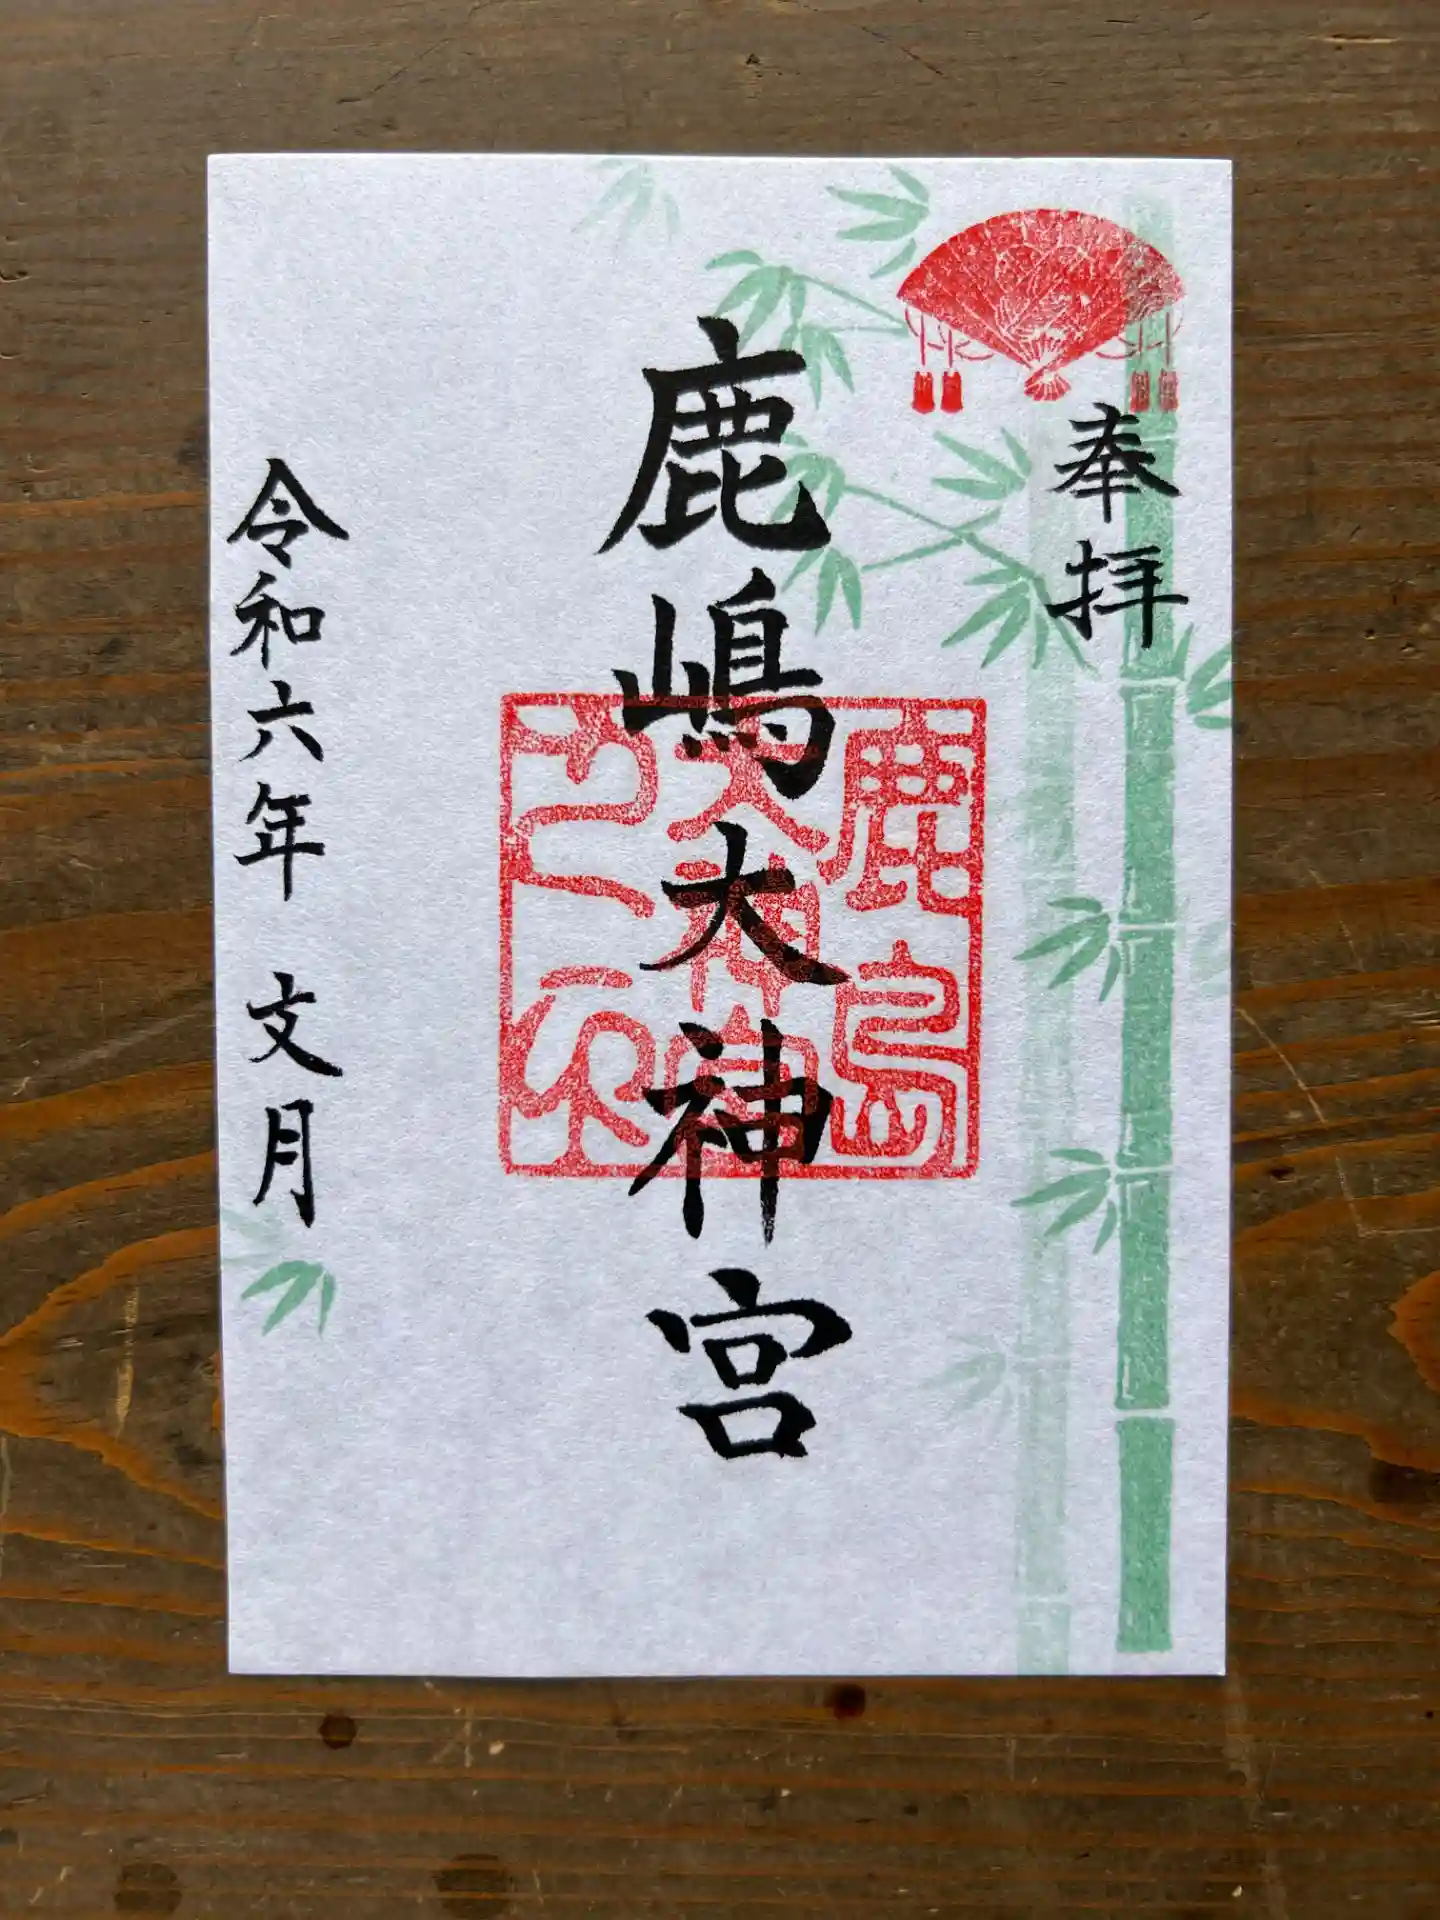 奉拝
鹿嶋大神宮
鹿島
大神宮
令和六年 文月